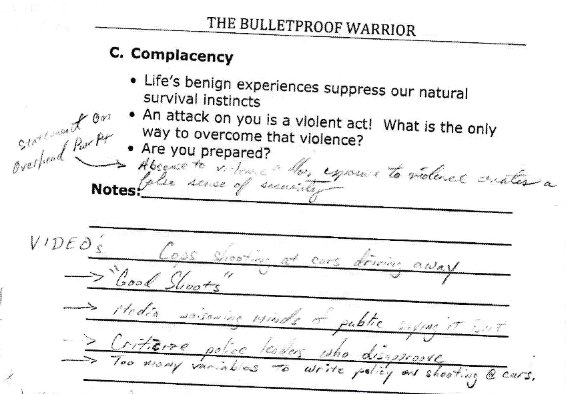 THE BULLETPROOF WARRIOR
C. Complacency
• Life's benign experiences suppress our natural
survival instincts
• An attack on you is a violent act! What is the only
way to overcome that violence?
• Are you prepared?
Statement on
Overhead
Absense to violence exposure to violence creates a
Notes: false sense of security
VIDEO's Cops shooting at cars driving away
→ "Good Shoots"
→ Media poisoning minds of public saying it
→ Criticize police leaders who disapprove
→ Too many variables to write policy on shooting @ cars.